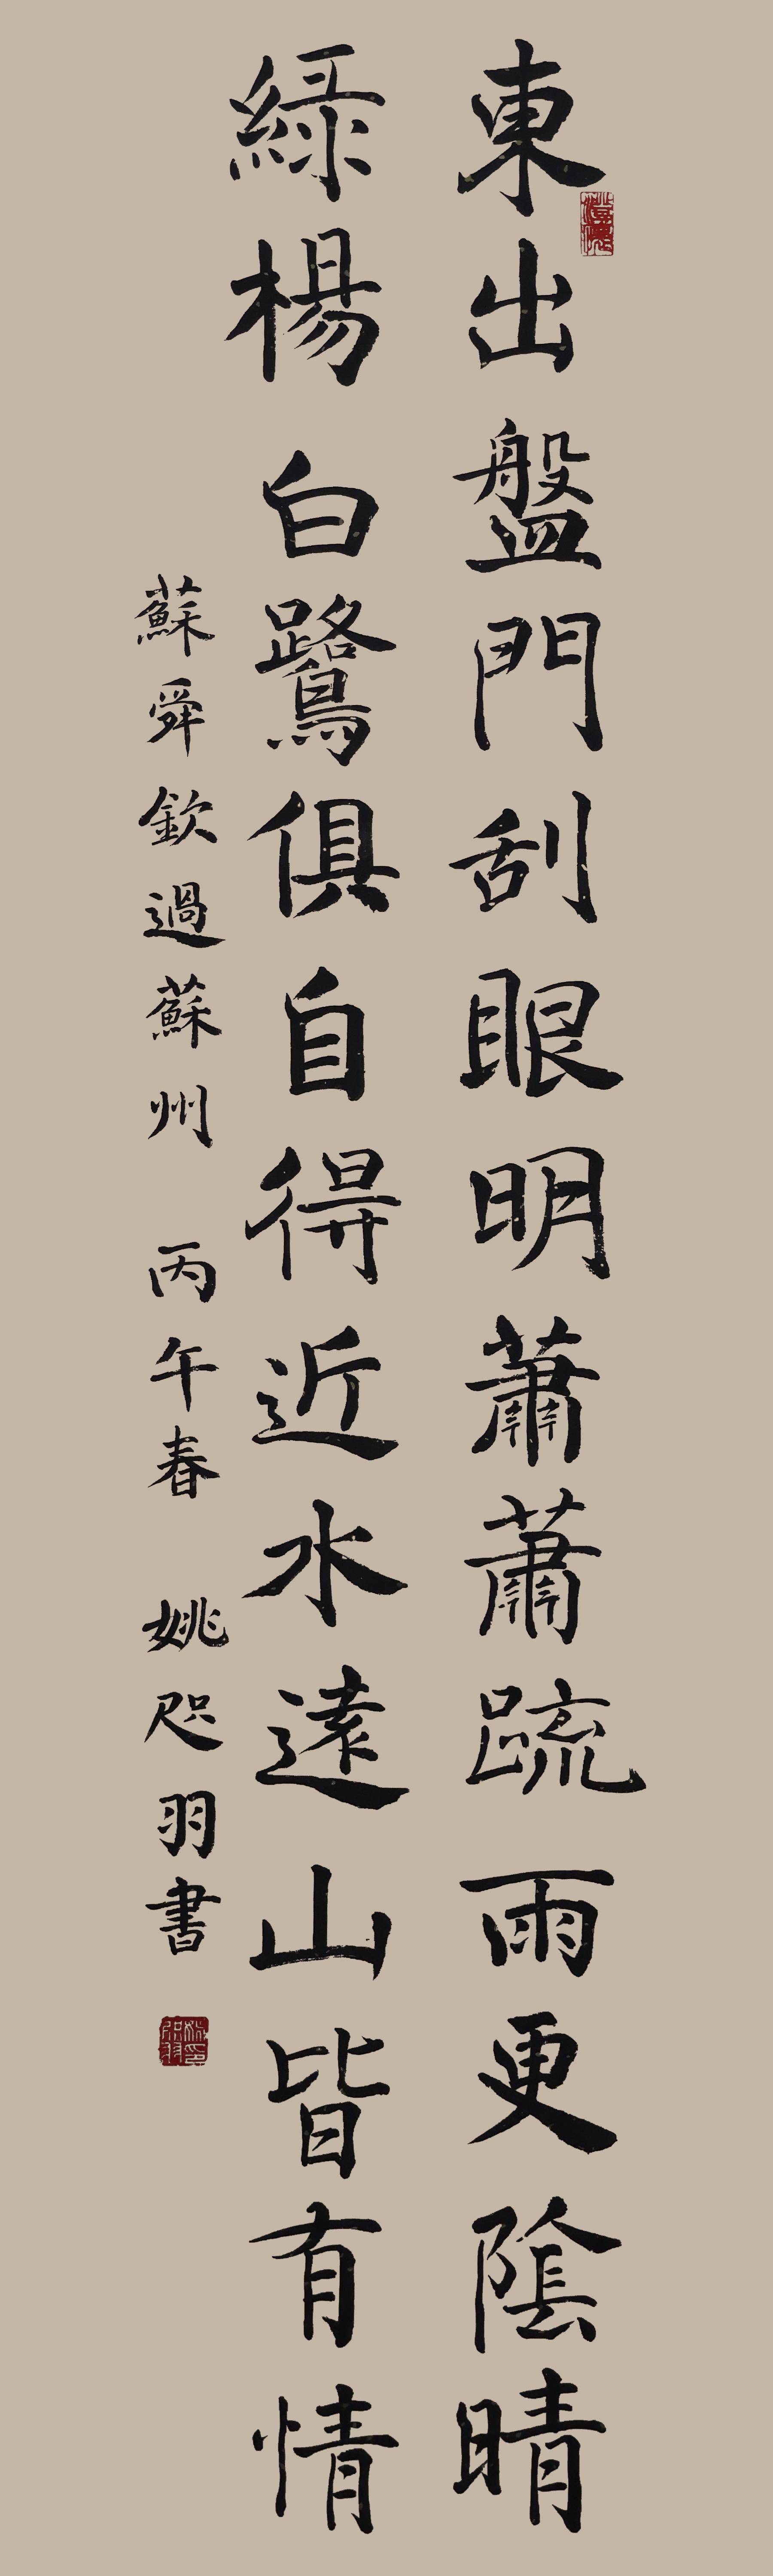 東出盤門刮眼明蕭蕭疏雨更陰晴
綠楊白鷺俱自得近水遠山皆有情
蘇舜欽過蘇州 丙午春 姚咫羽書